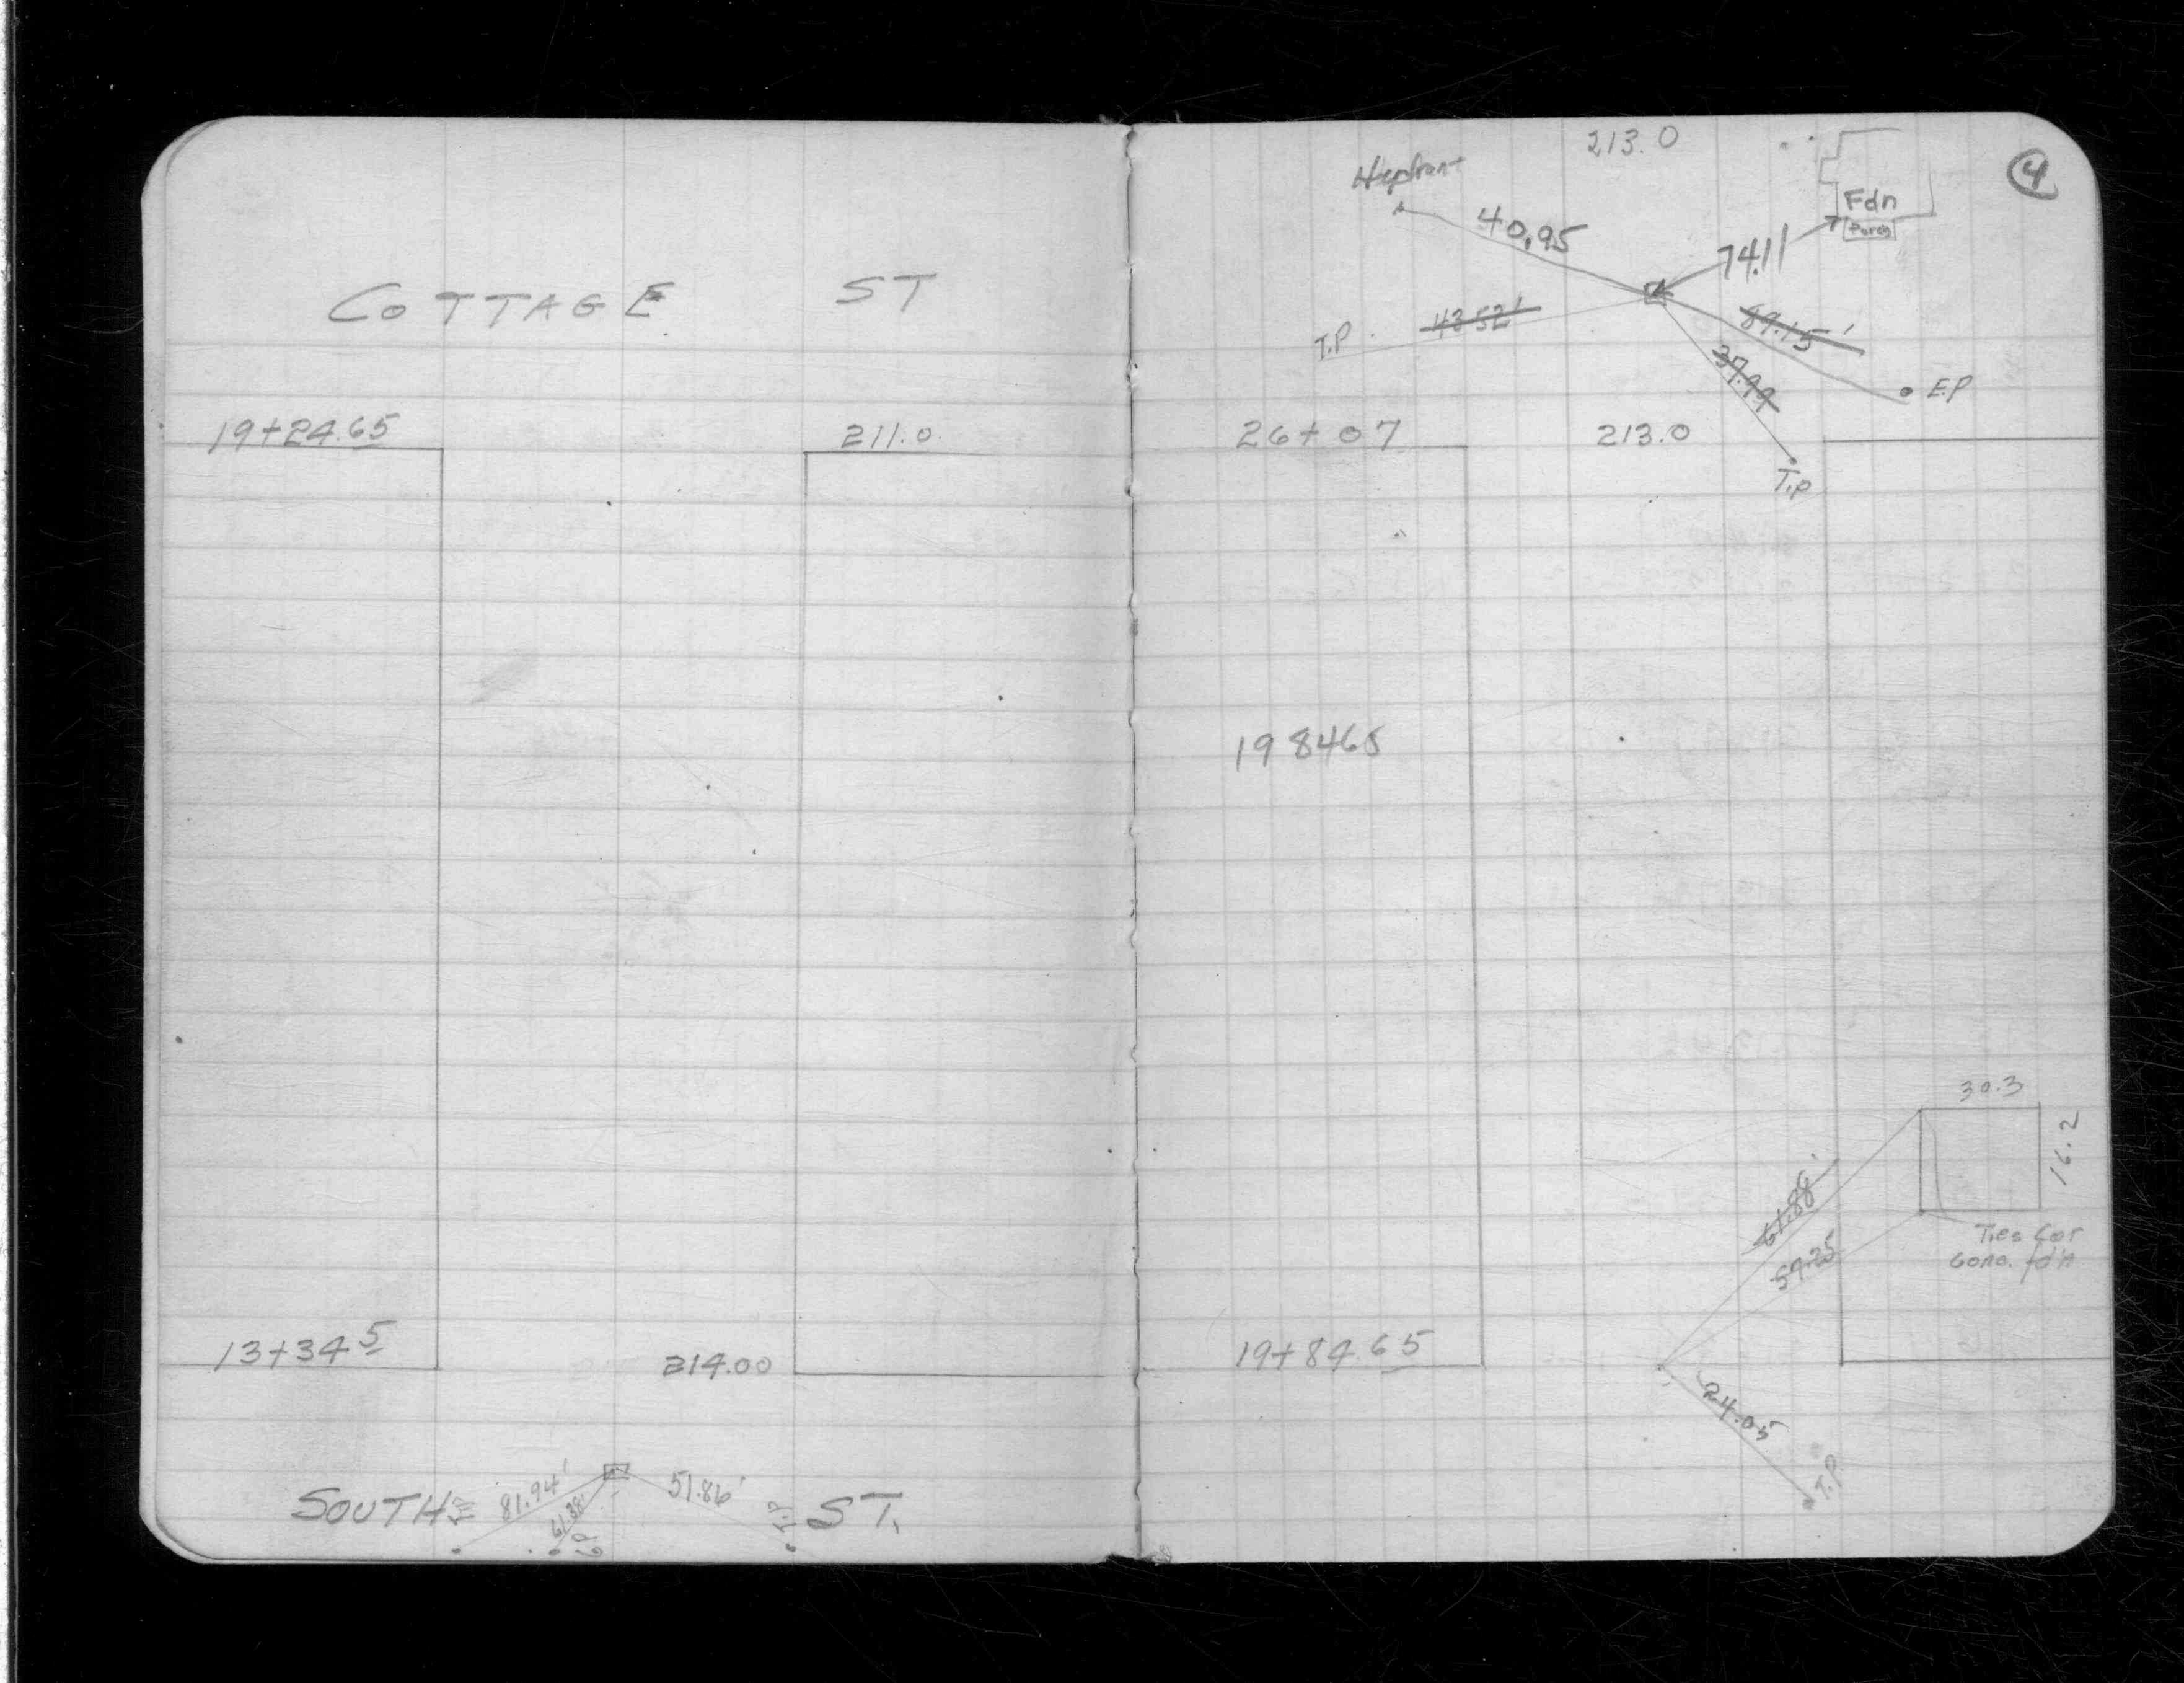 COTTAGE ST
19+24.65 211.0
13+34 5 214.00
81.94' 51.86'
61.38'
SOUTH ST.
T.P
213.0
4
Hydrant
40.95
Fdn
Porch
74.11
T.P 43.52' 89.15'
37.99
E.P
26+07 213.0
T.P
198465
30.3
16.2
61.88'
57.25
Ties Cor
Conc. fd'n
19+84.65
24.05
T.P